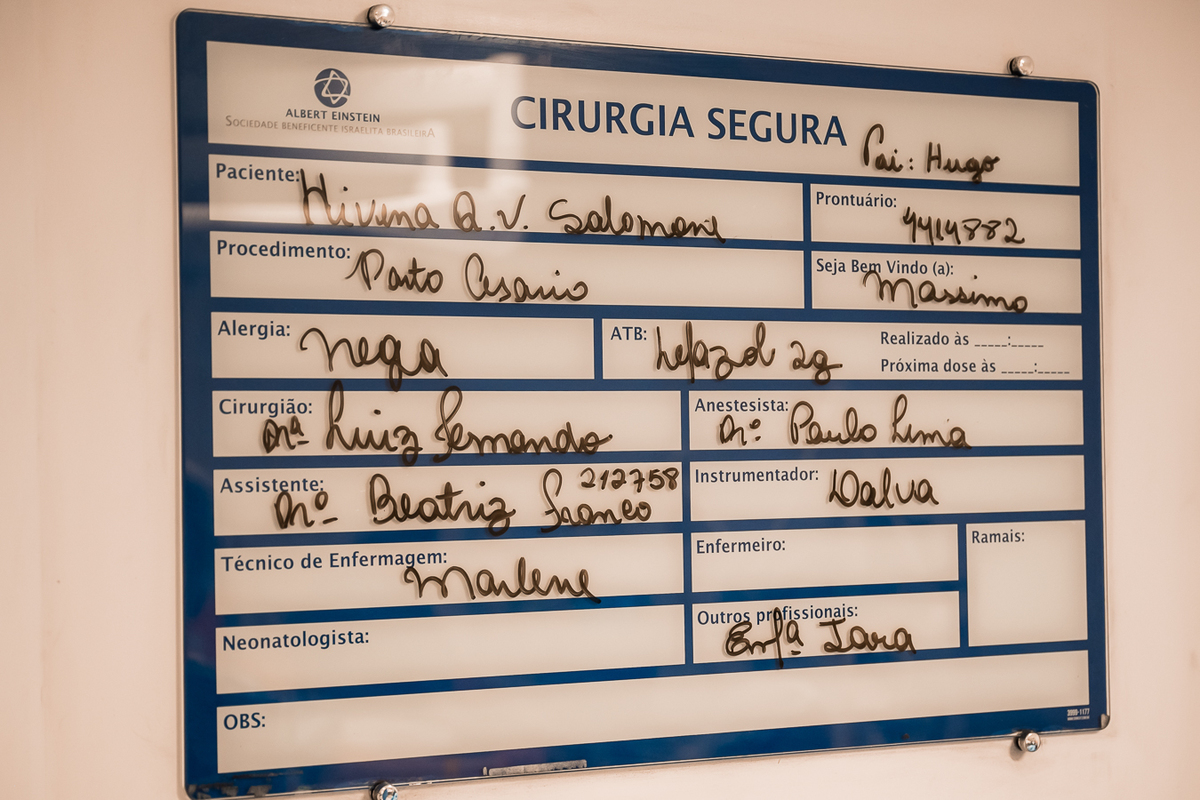 ALBERT EINSTEIN
SOCIEDADE BENEFICENTE ISRAELITA BRASILEIRA
CIRURGIA SEGURA
Pai: Hugo
Paciente: Hivena Q.V. Salomone
Prontuário: 4414882
Procedimento: Parto Cesario
Seja Bem Vindo (a): Massimo
Alergia: nega
ATB: Kefazol 2g
Realizado às _____:_____
Próxima dose às _____:_____
Cirurgião: Drª Luiz Fernando
Anestesista: Drº Paulo Lima
Assistente: Drº Beatriz Franco 212758
Instrumentador: Dalva
Técnico de Enfermagem: Marlene
Enfermeiro:
Ramais:
Neonatologista:
Outros profissionais: Enfª Iara
OBS: